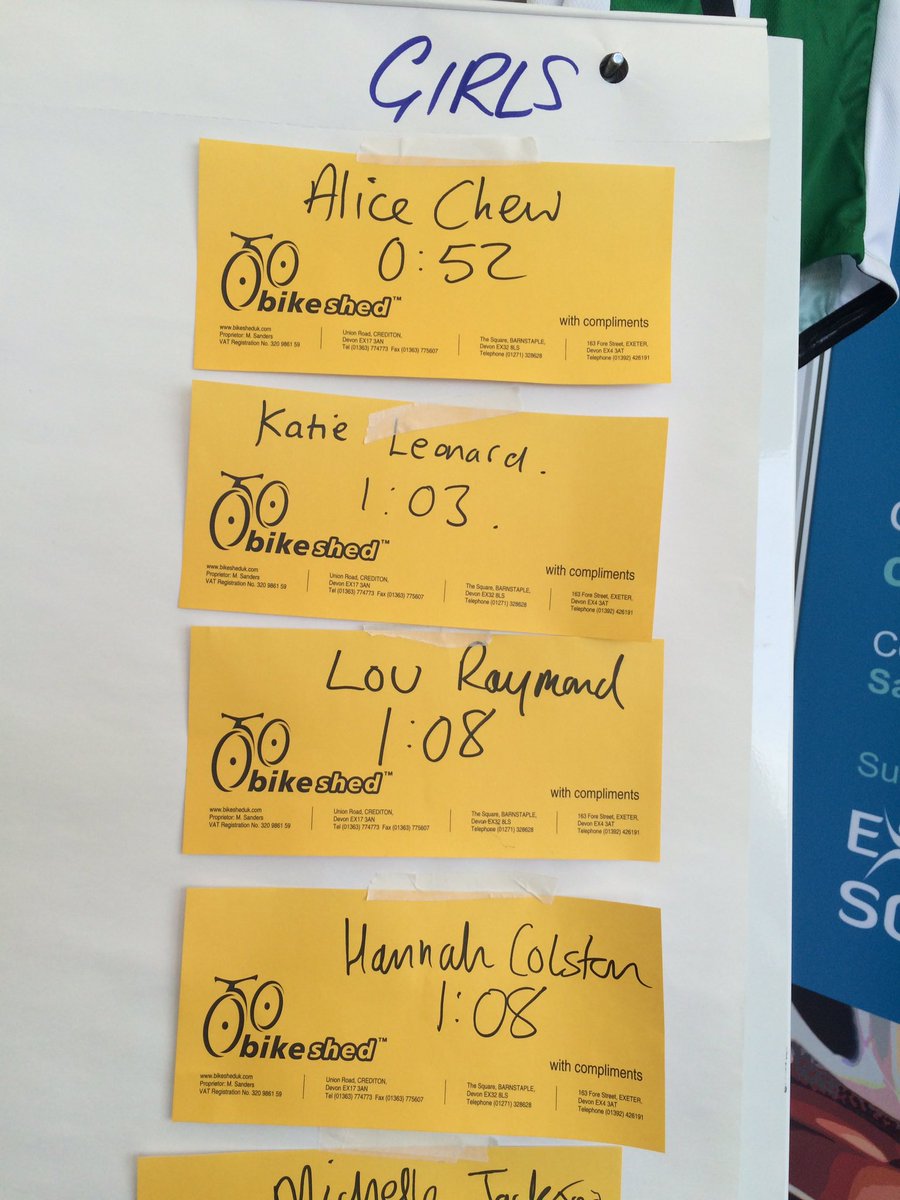 GIRLS
Alice Chew
0:52
bikeshed™
with compliments
www.bikesheduk.com
Proprietor: M. Sanders
VAT Registration No. 320 9861 59
Union Road, CREDITON,
Devon EX17 3AN
Tel (01363) 774773 Fax (01363) 775607
The Square, BARNSTAPLE,
Devon EX32 8LS
Telephone (01271) 328628
163 Fore Street, EXETER,
Devon EX4 3AT
Telephone (01392) 426191
Katie Leonard.
1:03.
bikeshed™
with compliments
www.bikesheduk.com
Proprietor: M. Sanders
VAT Registration No. 320 9861 59
Union Road, CREDITON,
Devon EX17 3AN
Tel (01363) 774773 Fax (01363) 775607
The Square, BARNSTAPLE,
Devon EX32 8LS
Telephone (01271) 328628
163 Fore Street, EXETER,
Devon EX4 3AT
Telephone (01392) 426191
Lou Raymond
1:08
bikeshed™
with compliments
www.bikesheduk.com
Proprietor: M. Sanders
VAT Registration No. 320 9861 59
Union Road, CREDITON,
Devon EX17 3AN
Tel (01363) 774773 Fax (01363) 775607
The Square, BARNSTAPLE,
Devon EX32 8LS
Telephone (01271) 328628
163 Fore Street, EXETER,
Devon EX4 3AT
Telephone (01392) 426191
Hannah Colston
1:08
bikeshed™
with compliments
www.bikesheduk.com
Proprietor: M. Sanders
VAT Registration No. 320 9861 59
Union Road, CREDITON,
Devon EX17 3AN
Tel (01363) 774773 Fax (01363) 775607
The Square, BARNSTAPLE,
Devon EX32 8LS
Telephone (01271) 328628
163 Fore Street, EXETER,
Devon EX4 3AT
Telephone (01392) 426191
Michelle Jackson